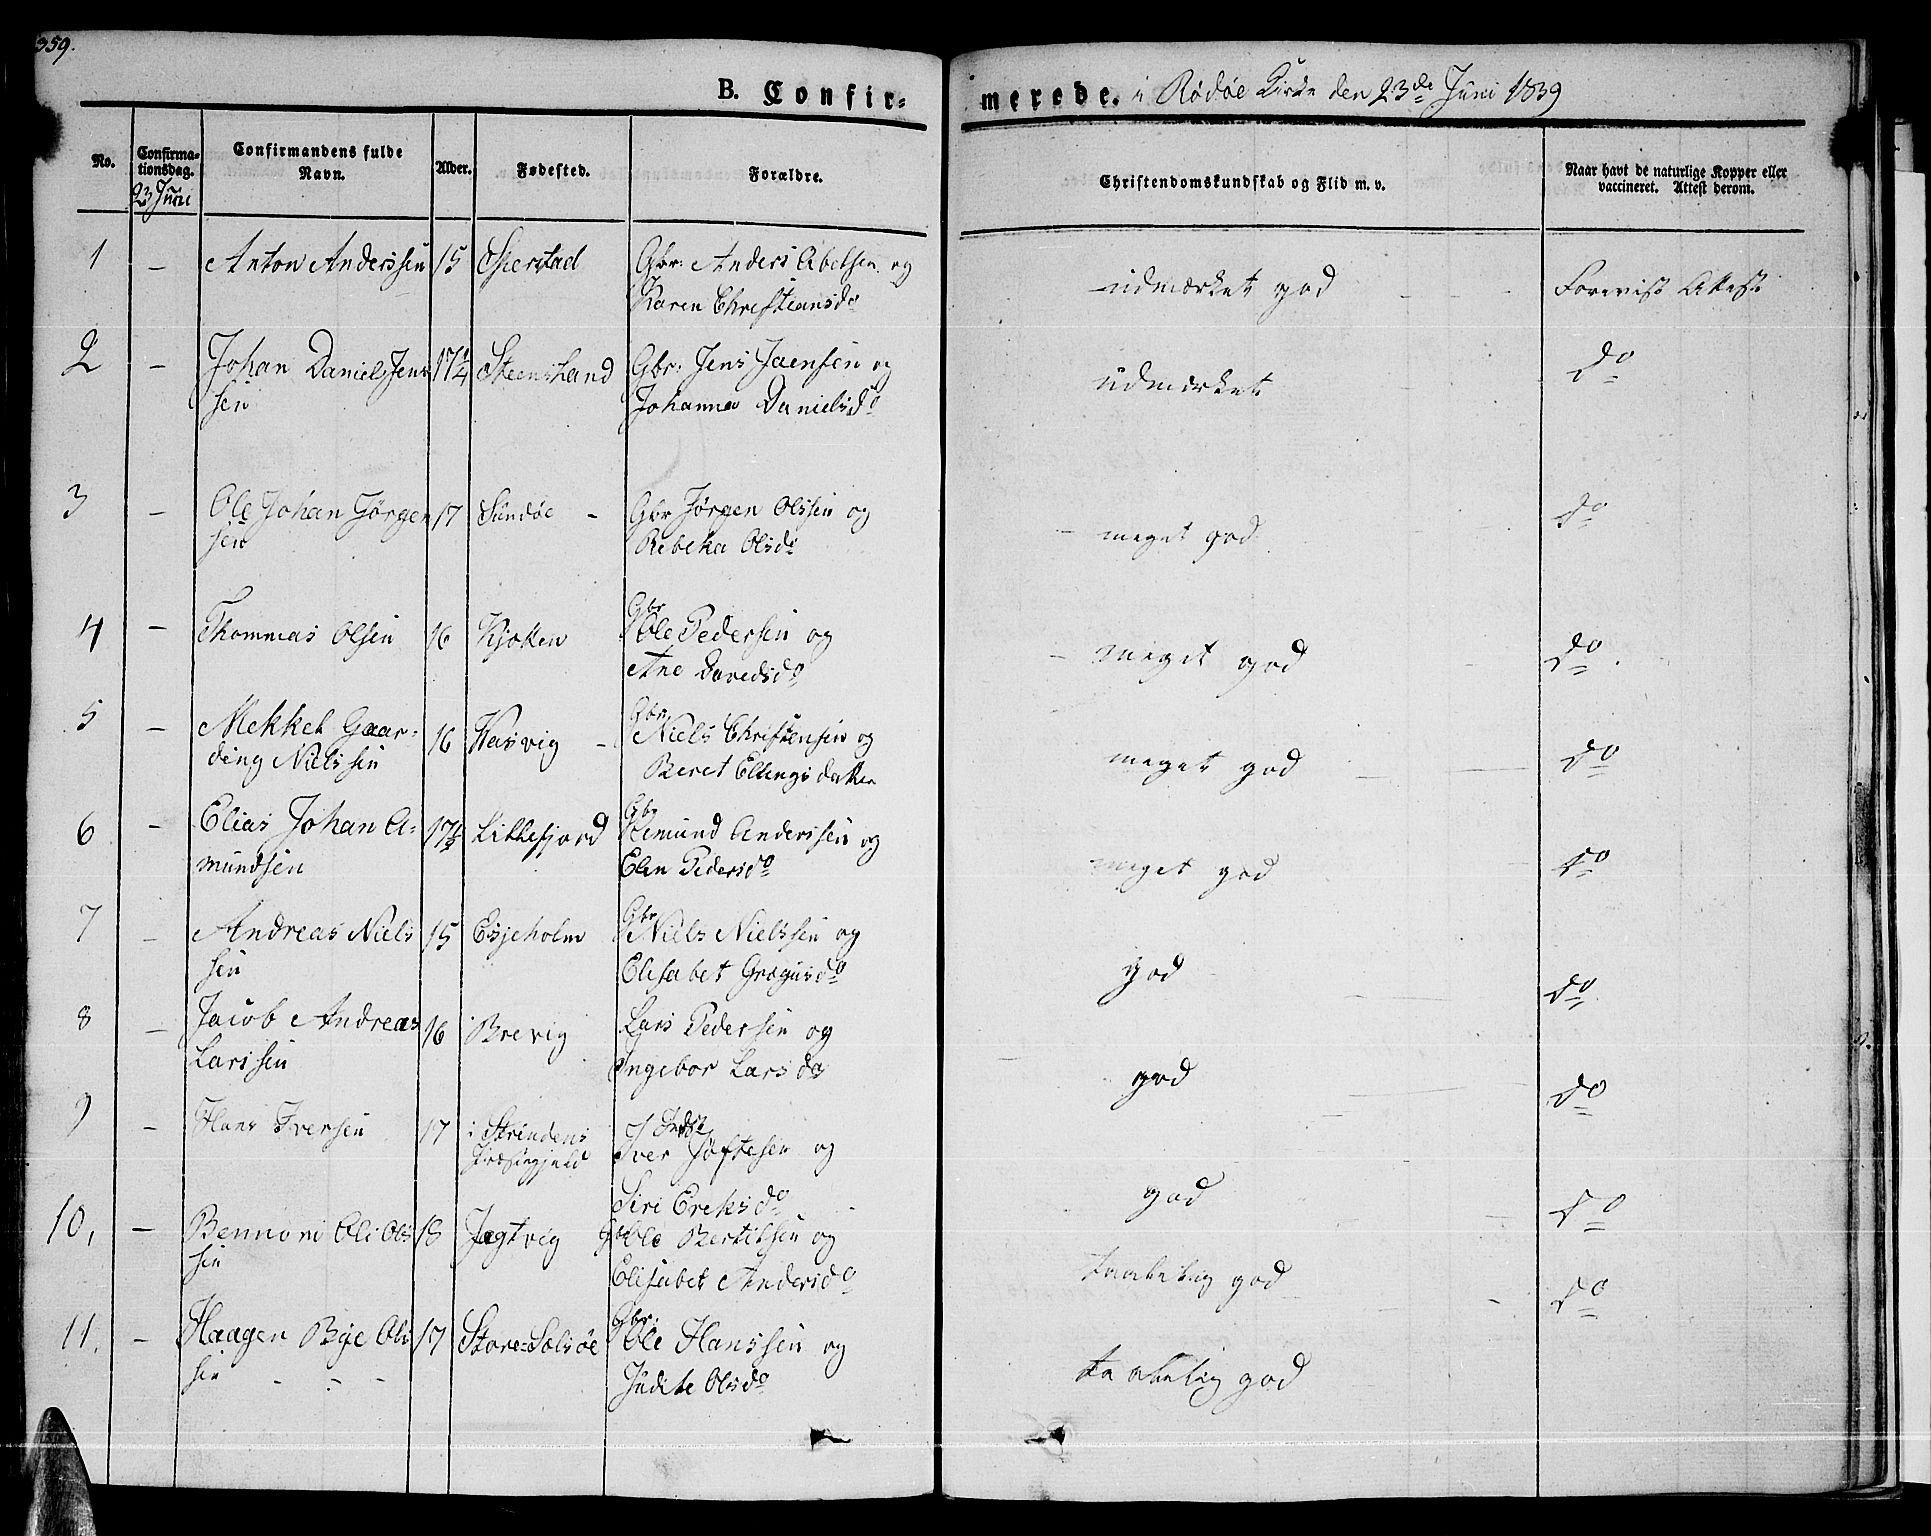 359.
B. Confirmerede. i Rødøe Kirke den 23de Juni 1839
No.
Confirmationsdag.
23 Juni
Confirmandens fulde Navn.
Alder.
Fødested.
Forældre.
Christendomskundskab og Flid m. v.
Naar havt de naturlige Kopper eller vaccineret. Attest derom.
1 – Anton Anderssen 15 Gbr: Anders Abelsen og
Karen Christiansdo
udmærket god Forevist Attest
2 – Johan Daniel Jens 17 1/4 Steensland Gbr: Jens Jaensen og
sen Johanna Danielsdo
udmærket do
3 – Ole Johan Jörgen 17 Sundöe – Gbr Jörgen Olssen og
sen Rebeka Olsdo
– meget god do
4 – Thommas Olsen 16 Kjokken Gbr Ole Pedersen og
Ane Davedsdo
– meget god do
5 – Mekkel Gaar- 16 Hasvig – Gbr Niels Christensen og
ding Nielssen Beret Ellingsdatter
meget god do
6 – Elias Johan A- 17 1/2 Lillefjord Gbr Amund Anderssen og
mundsen Elen Pedersdo
meget god do
7 – Andreas Niels 15 Esjeholm Gbr Niels Nielssen og
sen Elisabet Gregusdo
god do
8 – Jacob Andreas 16 Brevig Lars Pedersen og
Larssen Ingebor Larsdo
god do
9 – Hans Iversen 17 i Strindens Iver Jöftesen og
Præstegjeld Siri Ereksdo
god do
10, – Bennoni Oli Ols 18 Jegtvig Gbr Ole Bertelsen og
sen Elisabet Andersdo
taalelig god do
11. – Haagen Bye Ols 17 Store-Selsöe Gbr: Ole Hanssen og
sen Judite Olsdo
taalelig god